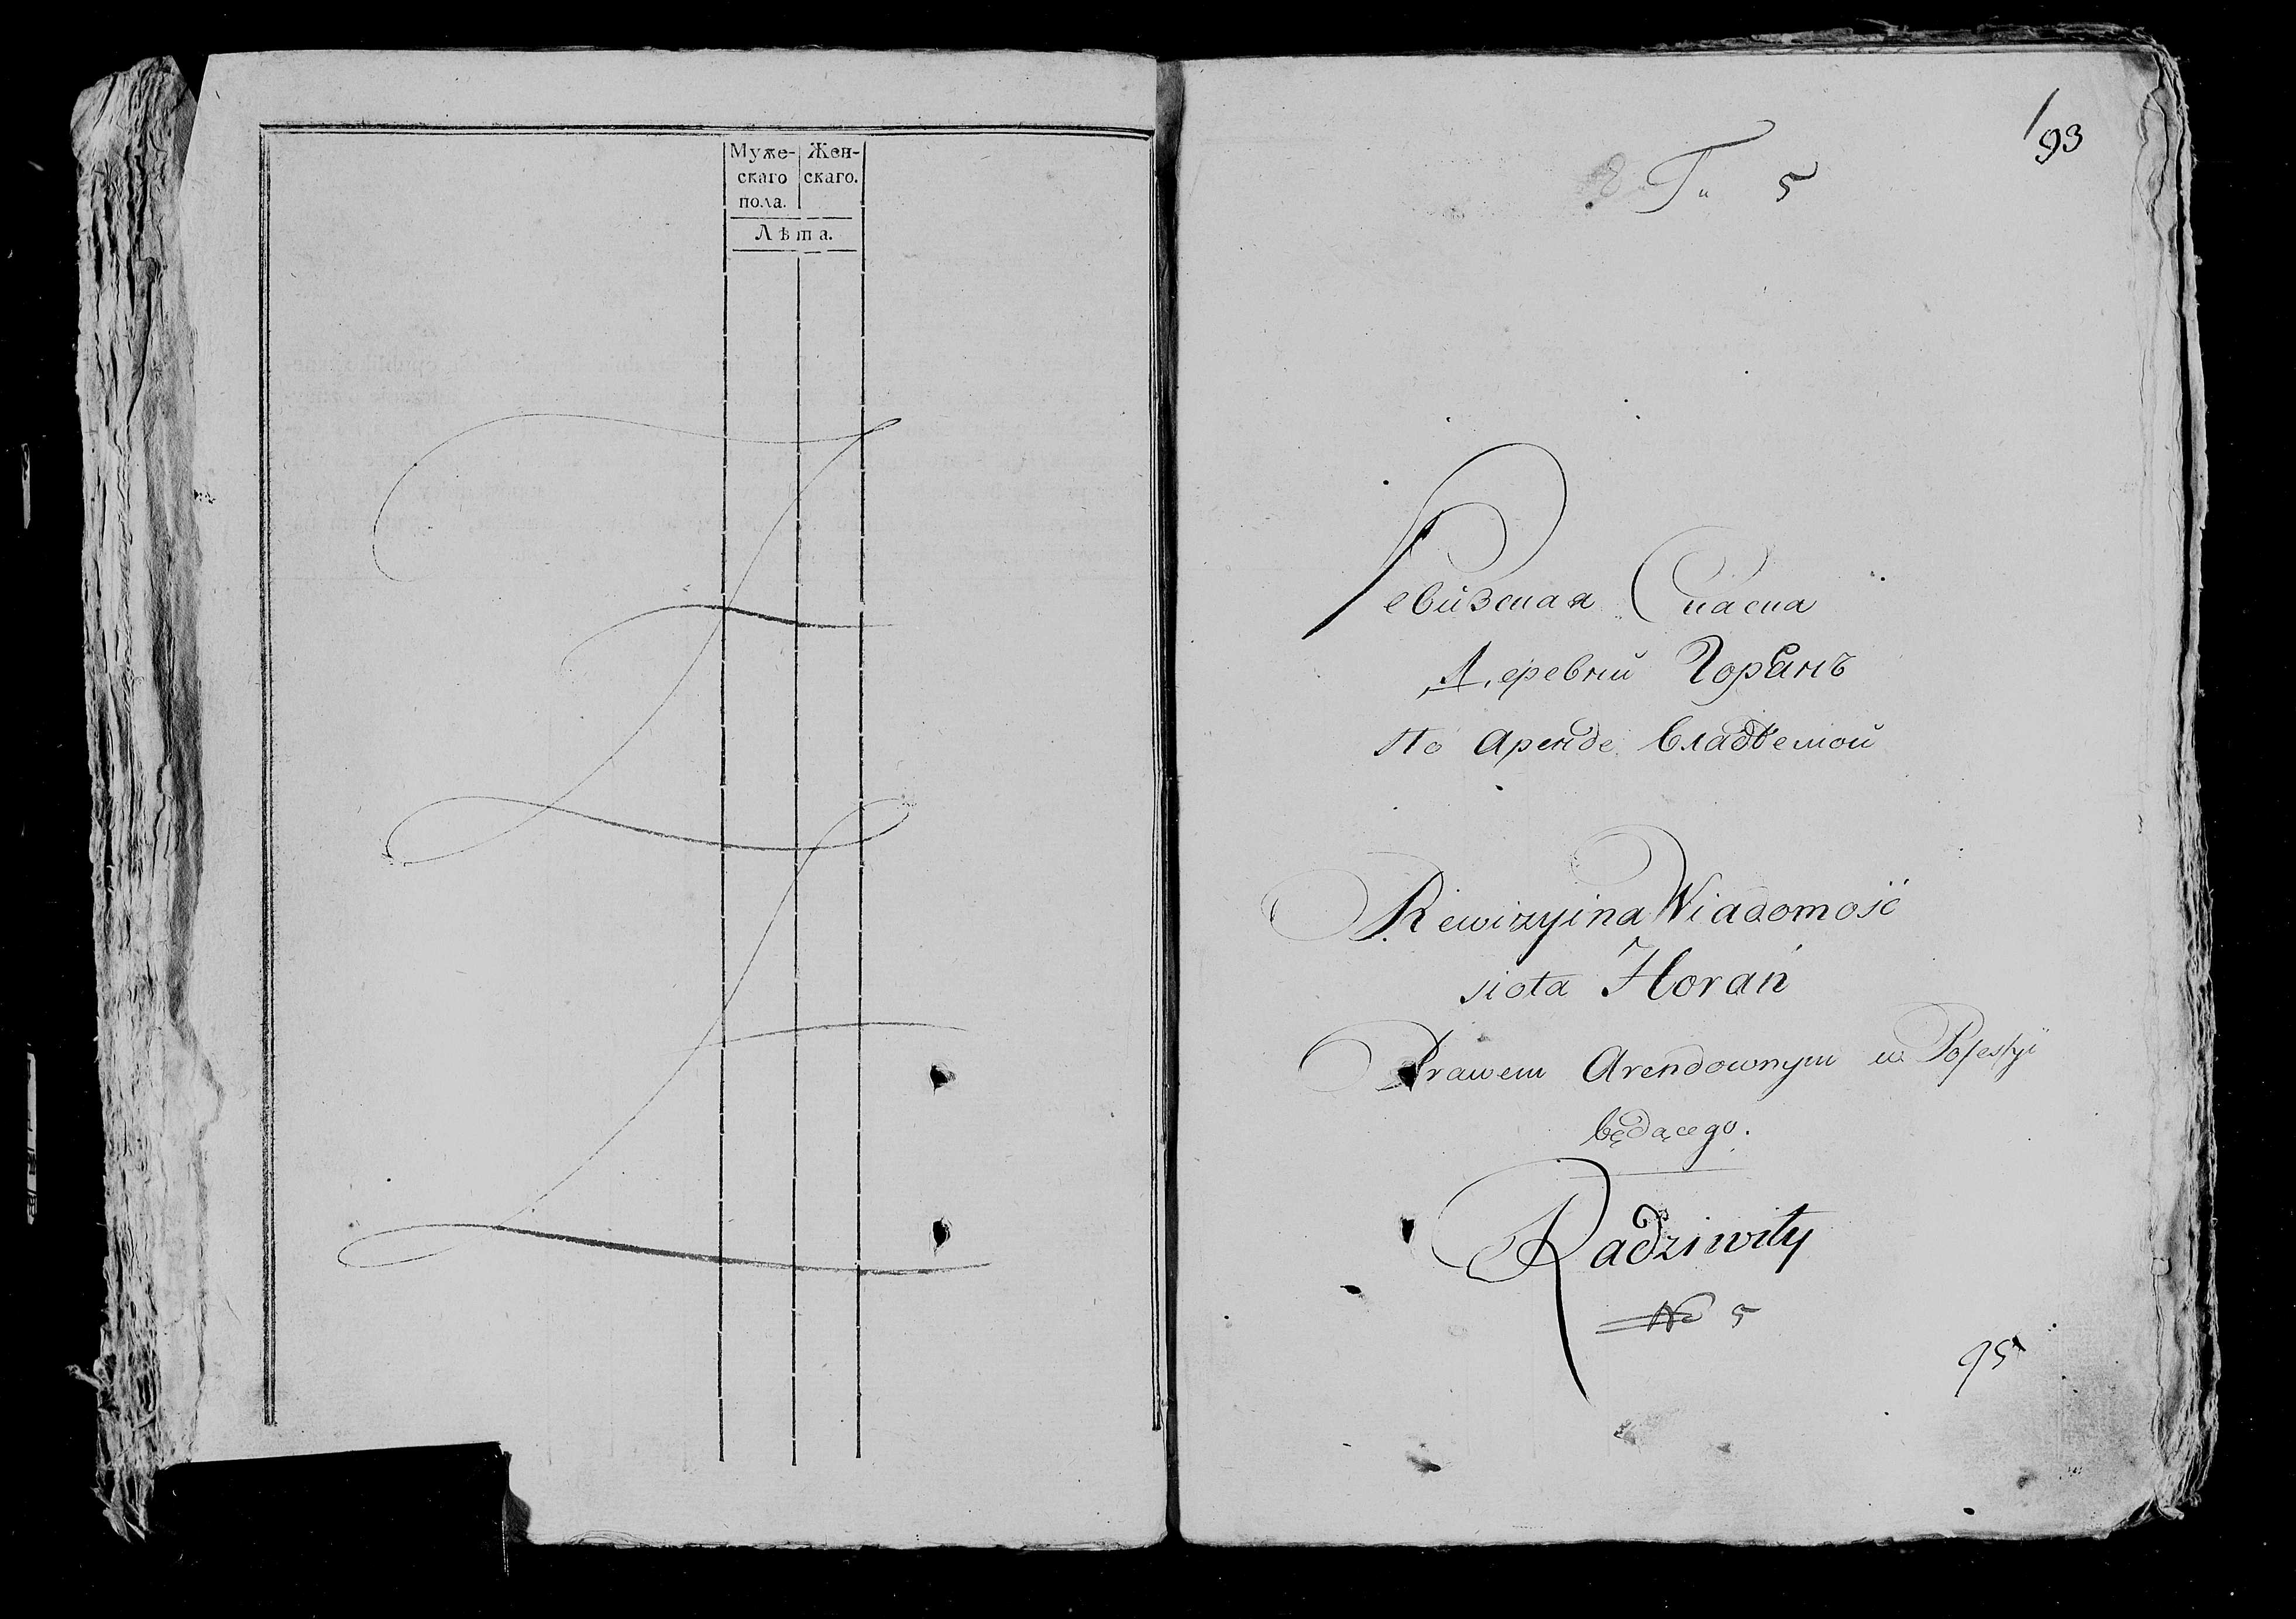 Муже-
скаго
пола.
Жен-
скаго.
Лѣта.
93
5
Ревизская Скаска
Деревни Горанъ
По Аренде владѣемой
Rewizyina Wiadomość
sioła Horań
Prawem Arendownym w Possessyi
będącego.
Radziwiły
No 5
95